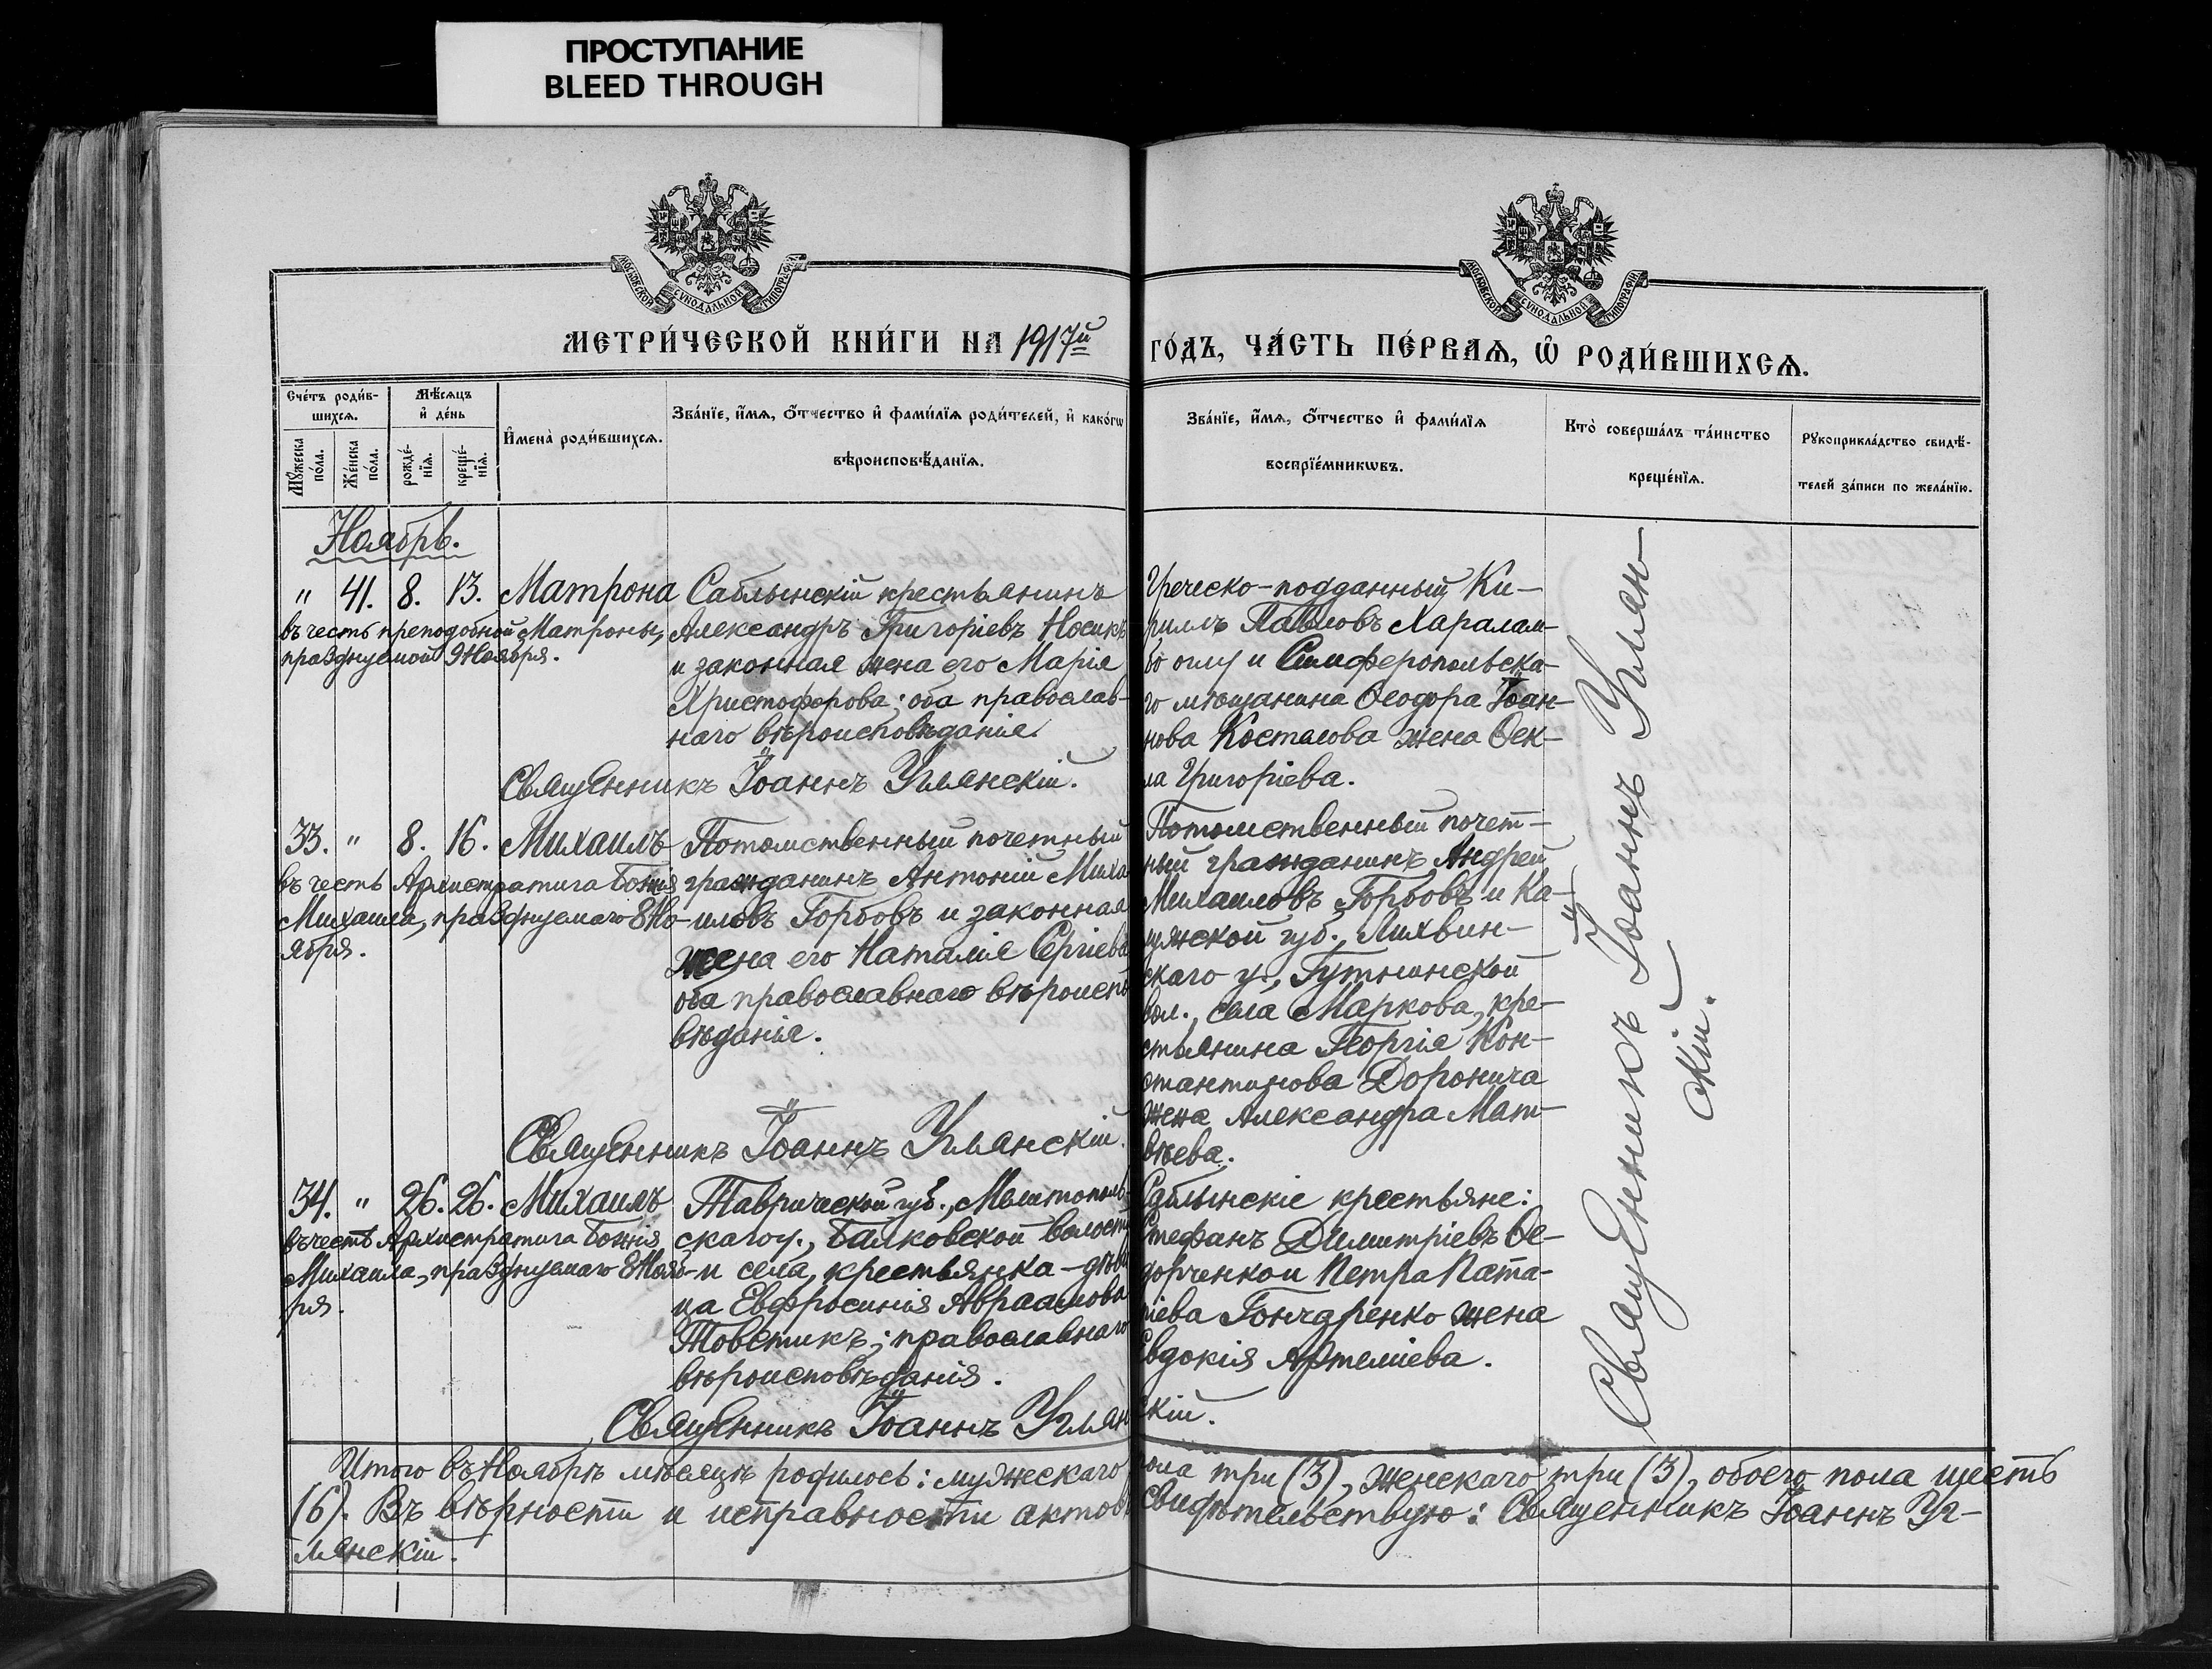 ПРОСТУПАНИЕ
BLEED THROUGH
МОСКОВСКОЙ СѴНОДАЛЬНОЙ ТИПОГРАФІИ
МОСКОВСКОЙ СѴНОДАЛЬНОЙ ТИПОГРАФІИ
МЕТРИ́ЧЕСКОЙ КНИ́ГИ НА 1917й
ГО́ДЪ, ЧА́СТЬ ПЕ́РВАѦ, Ѿ РОДИ́ВШИХСѦ.
Сче́тъ роди́в-
шихсѧ.
Мꙋ́жеска по́ла.
Же́нска по́ла.
Мѣ́сѧцъ
и҆ де́нь
рожде́-
нїѧ.
креще́-
нїѧ.
И҆мена̀ роди́вшихсѧ.
Зва́нїе, и҆́мѧ, ѻ҆́тчество и҆ фами́лїѧ роди́телей, и҆ како́гѡ
вѣроисповѣ́данїѧ.
Зва́нїе, и҆́мѧ, ѻ҆́тчество и҆ фами́лїѧ
воспрїе́мникѡвъ.
Кто̀ соверша́лъ та́инство
креще́нїѧ.
Рꙋкоприкла́дство свидѣ́-
телей за́писи по жела́нїю.
Ноябрь.
" 41. 8. 13. Матрона
въ честь преподобной Матроны,
празднуемой 9 Ноября.
Саблынскій крестьянинъ
Александръ Григоріевъ Носикъ
и законная жена его Марія
Христофорова; оба православ-
наго вѣроисповѣданія.
Священникъ Іоаннъ Углянскій.
Греческо-подданный Ки-
риллъ Павловъ Харалам-
бо оглу и Симферопольска-
го мѣщанина Ѳеодора Іоан-
нова Костакова жена Ѳек-
ла Григоріева.
33. " 8. 16. Михаилъ
въ честь Архистратига Божія
Михаила, празднуемаго 8 Но-
ября.
Потомственный почетный
гражданинъ Антоній Миха-
иловъ Горбовъ и законная
жена его Наталія Сергіева
оба православнаго вѣроиспо
вѣданія.
Священникъ Іоаннъ Углянскій.
Потомственный почет-
ный гражданинъ Андрей
Михаиловъ Горбовъ и Ка-
лужской губ., Лихвин-
скаго у., Гутнинской
вол., села Маркова, кре-
стьянина Георгія Кон-
стантинова Доронича
жена Александра Мат-
вѣева.
34. " 26. 26. Михаилъ
въ честь Архистратига Божія
Михаила, празднуемаго 8 Нояб-
ря.
Таврической губ., Мелитополь-
скаго у., Балковской волост
и села, крестьянка-дѣви
ца Евфросинія Авраамова
Товстикъ; православнаго
вѣроисповѣданія.
Саблынскіе крестьяне:
Стефанъ Димитріевъ Ѳе-
дорченко и Петра Пата-
піева Гончаренко жена
Евдокія Артеміева.
Священникъ Іоаннъ Углянскій.
Священникъ Іоаннъ Углян-
скій.
Итого въ Ноябрѣ мѣсяцѣ родилось: мужескаго пола три (3), женскаго три (3), обоего пола шесть
(6). Въ вѣрности и исправности актовъ свидѣтельствую: Священникъ Іоаннъ Уг-
лянскій.